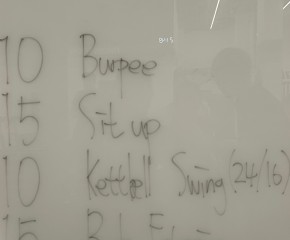 10 Burpee
15 Sit up
10 Kettlbell Swing (24/16)
15